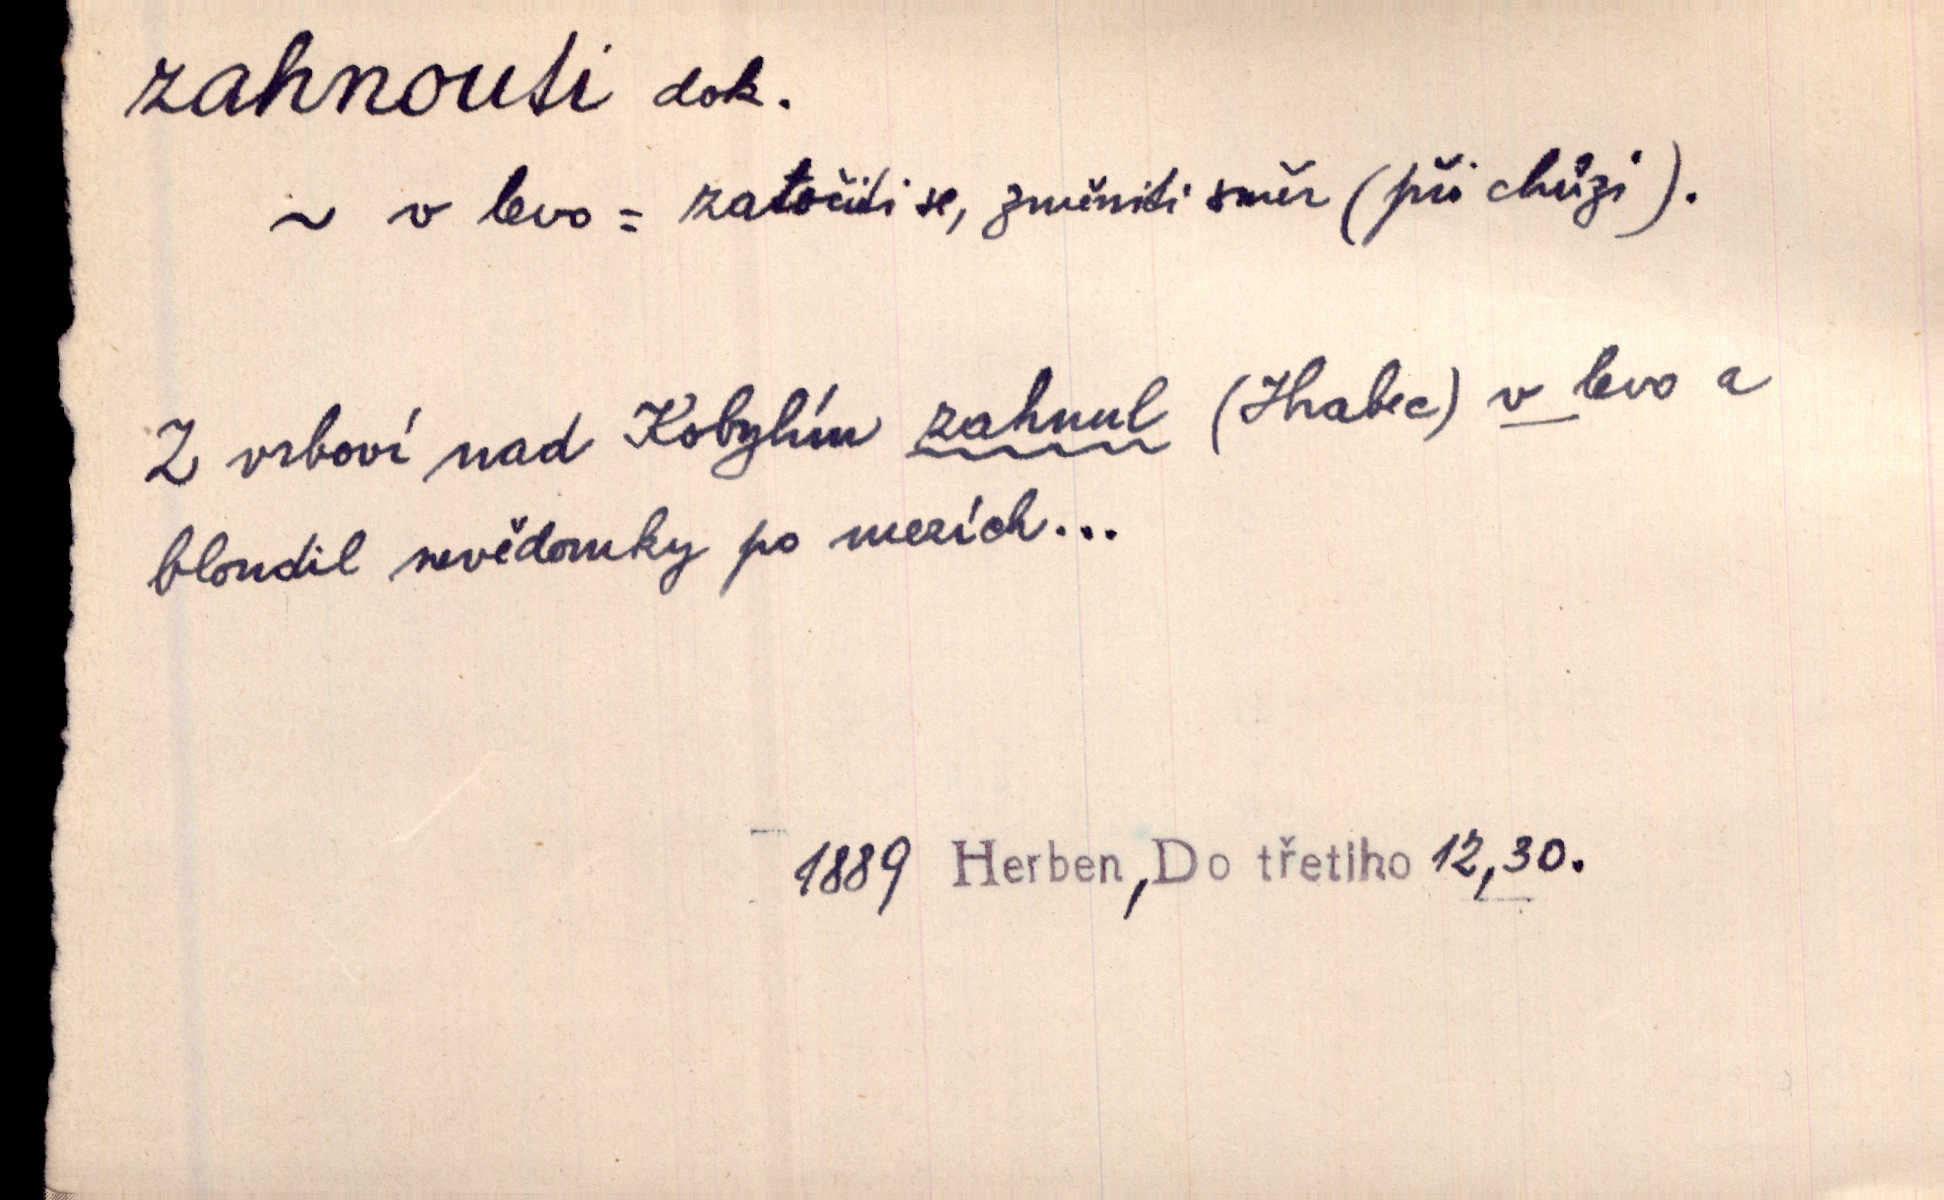 zahnouti dok.
~ v levo = zatočiti se, změniti směr (při chůzi).
Z vrboví nad Kobylím zahnul (Hrabec) v levo a
bloudil nevědomky po mezích...
1889 Herben, Do třetího 12,30.